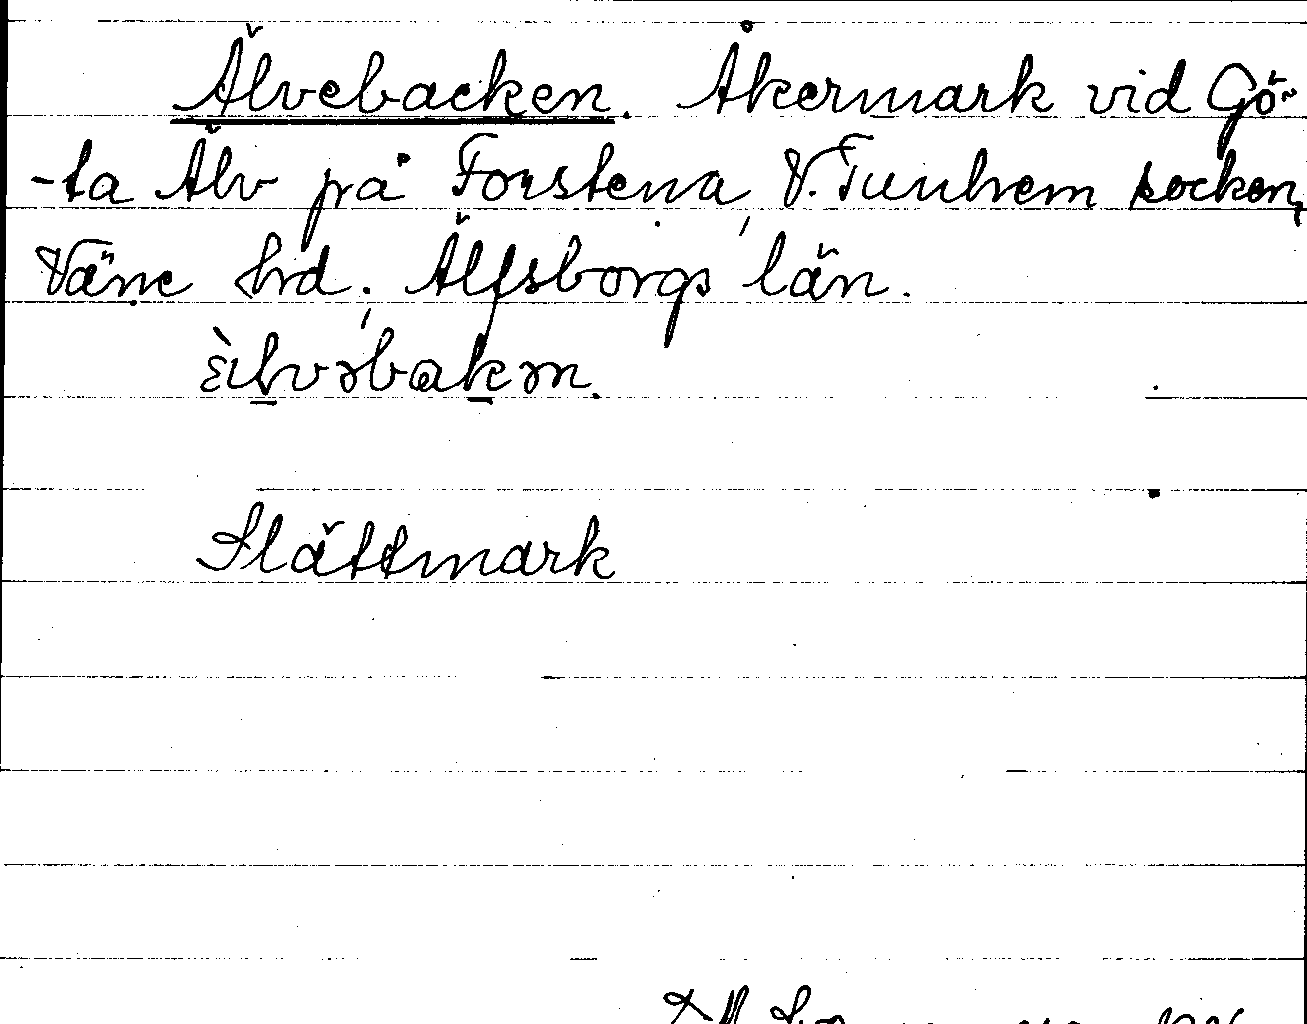 Älvebacken. Åkermark vid Gö-
-ta Älv på Forstena, V. Tunhem socken,
Väne hrd; Älfsborgs län.
Slättmark